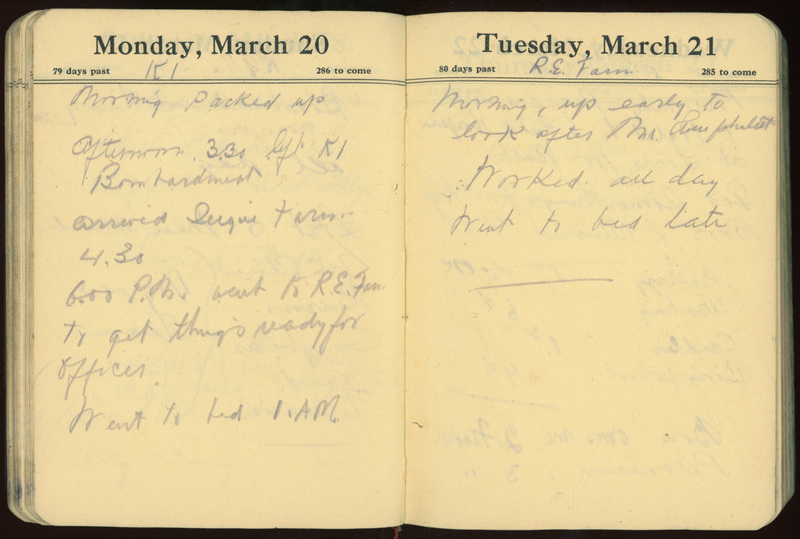 Monday, March 20
79 days past
286 to come
K1
Morning packed up
afternoon 3.30 left K1
Bombardment
arrived Farm
4.30
6.00 P.M. went to R.E. Farm
to get things ready for
offices.
Went to bed 1. A.M.
Tuesday, March 21
80 days past
285 to come
R.E. Farm
Morning, up early to
look after Mr
Worked all day
Went to bed late